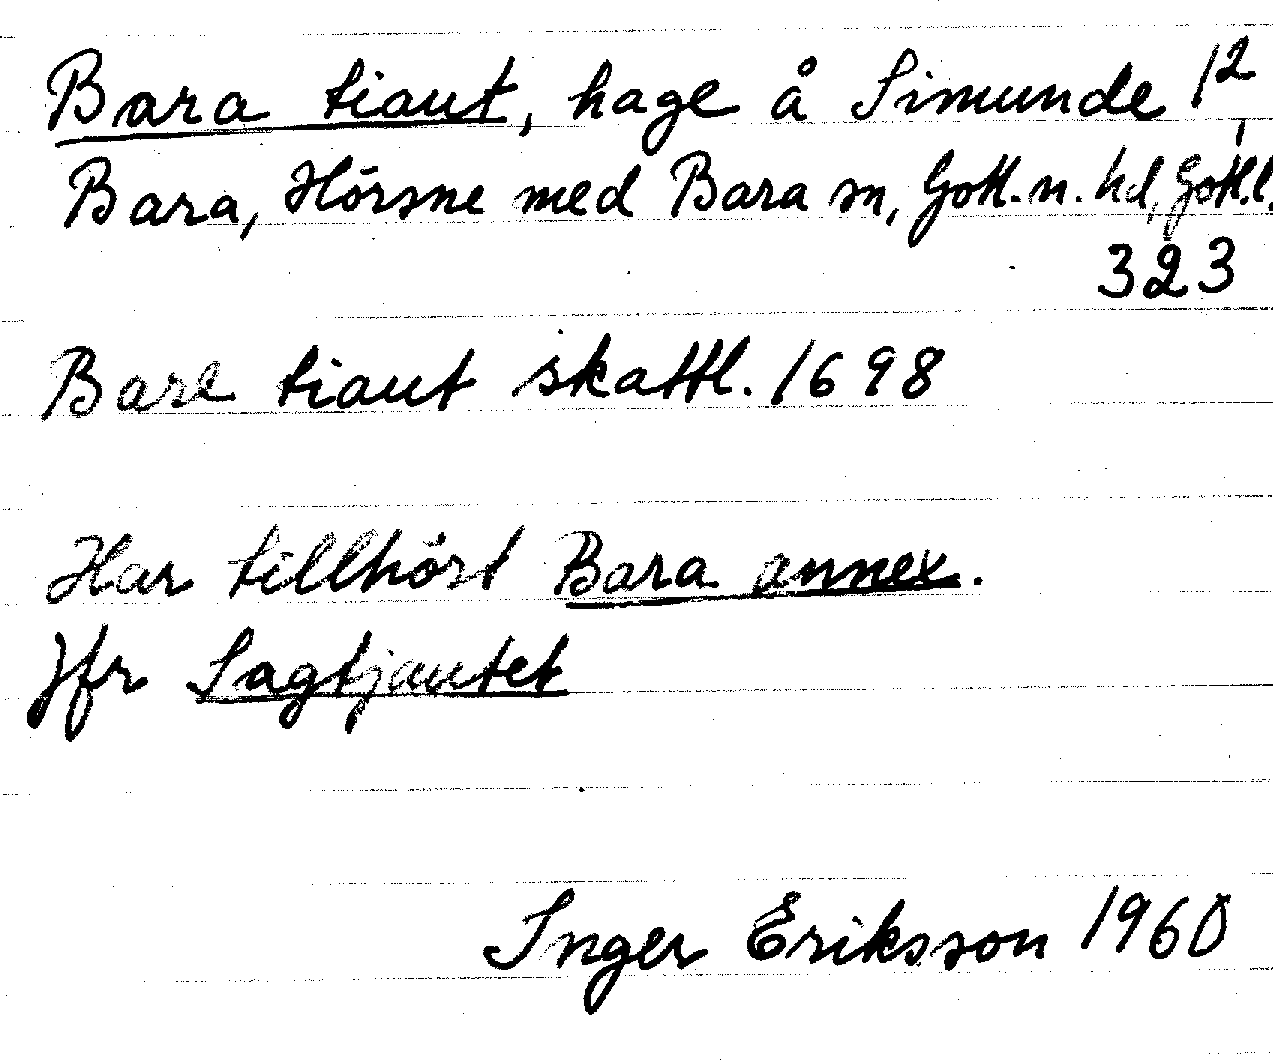 Bara tiaut, hage å Simunde 1²,
Bara, Hörsne med Bara sn, Gotl. n. hd, Gotl. l.
323
Bare tiaut skattl. 1698
Har tillhört Bara annex.
Jfr Sagtjautet
Inger Eriksson 1960